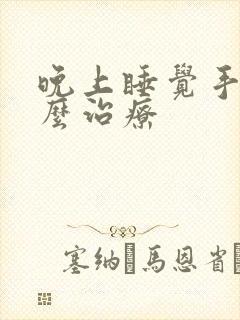 晚上睡覺手
麼治療
塞纳馬恩省